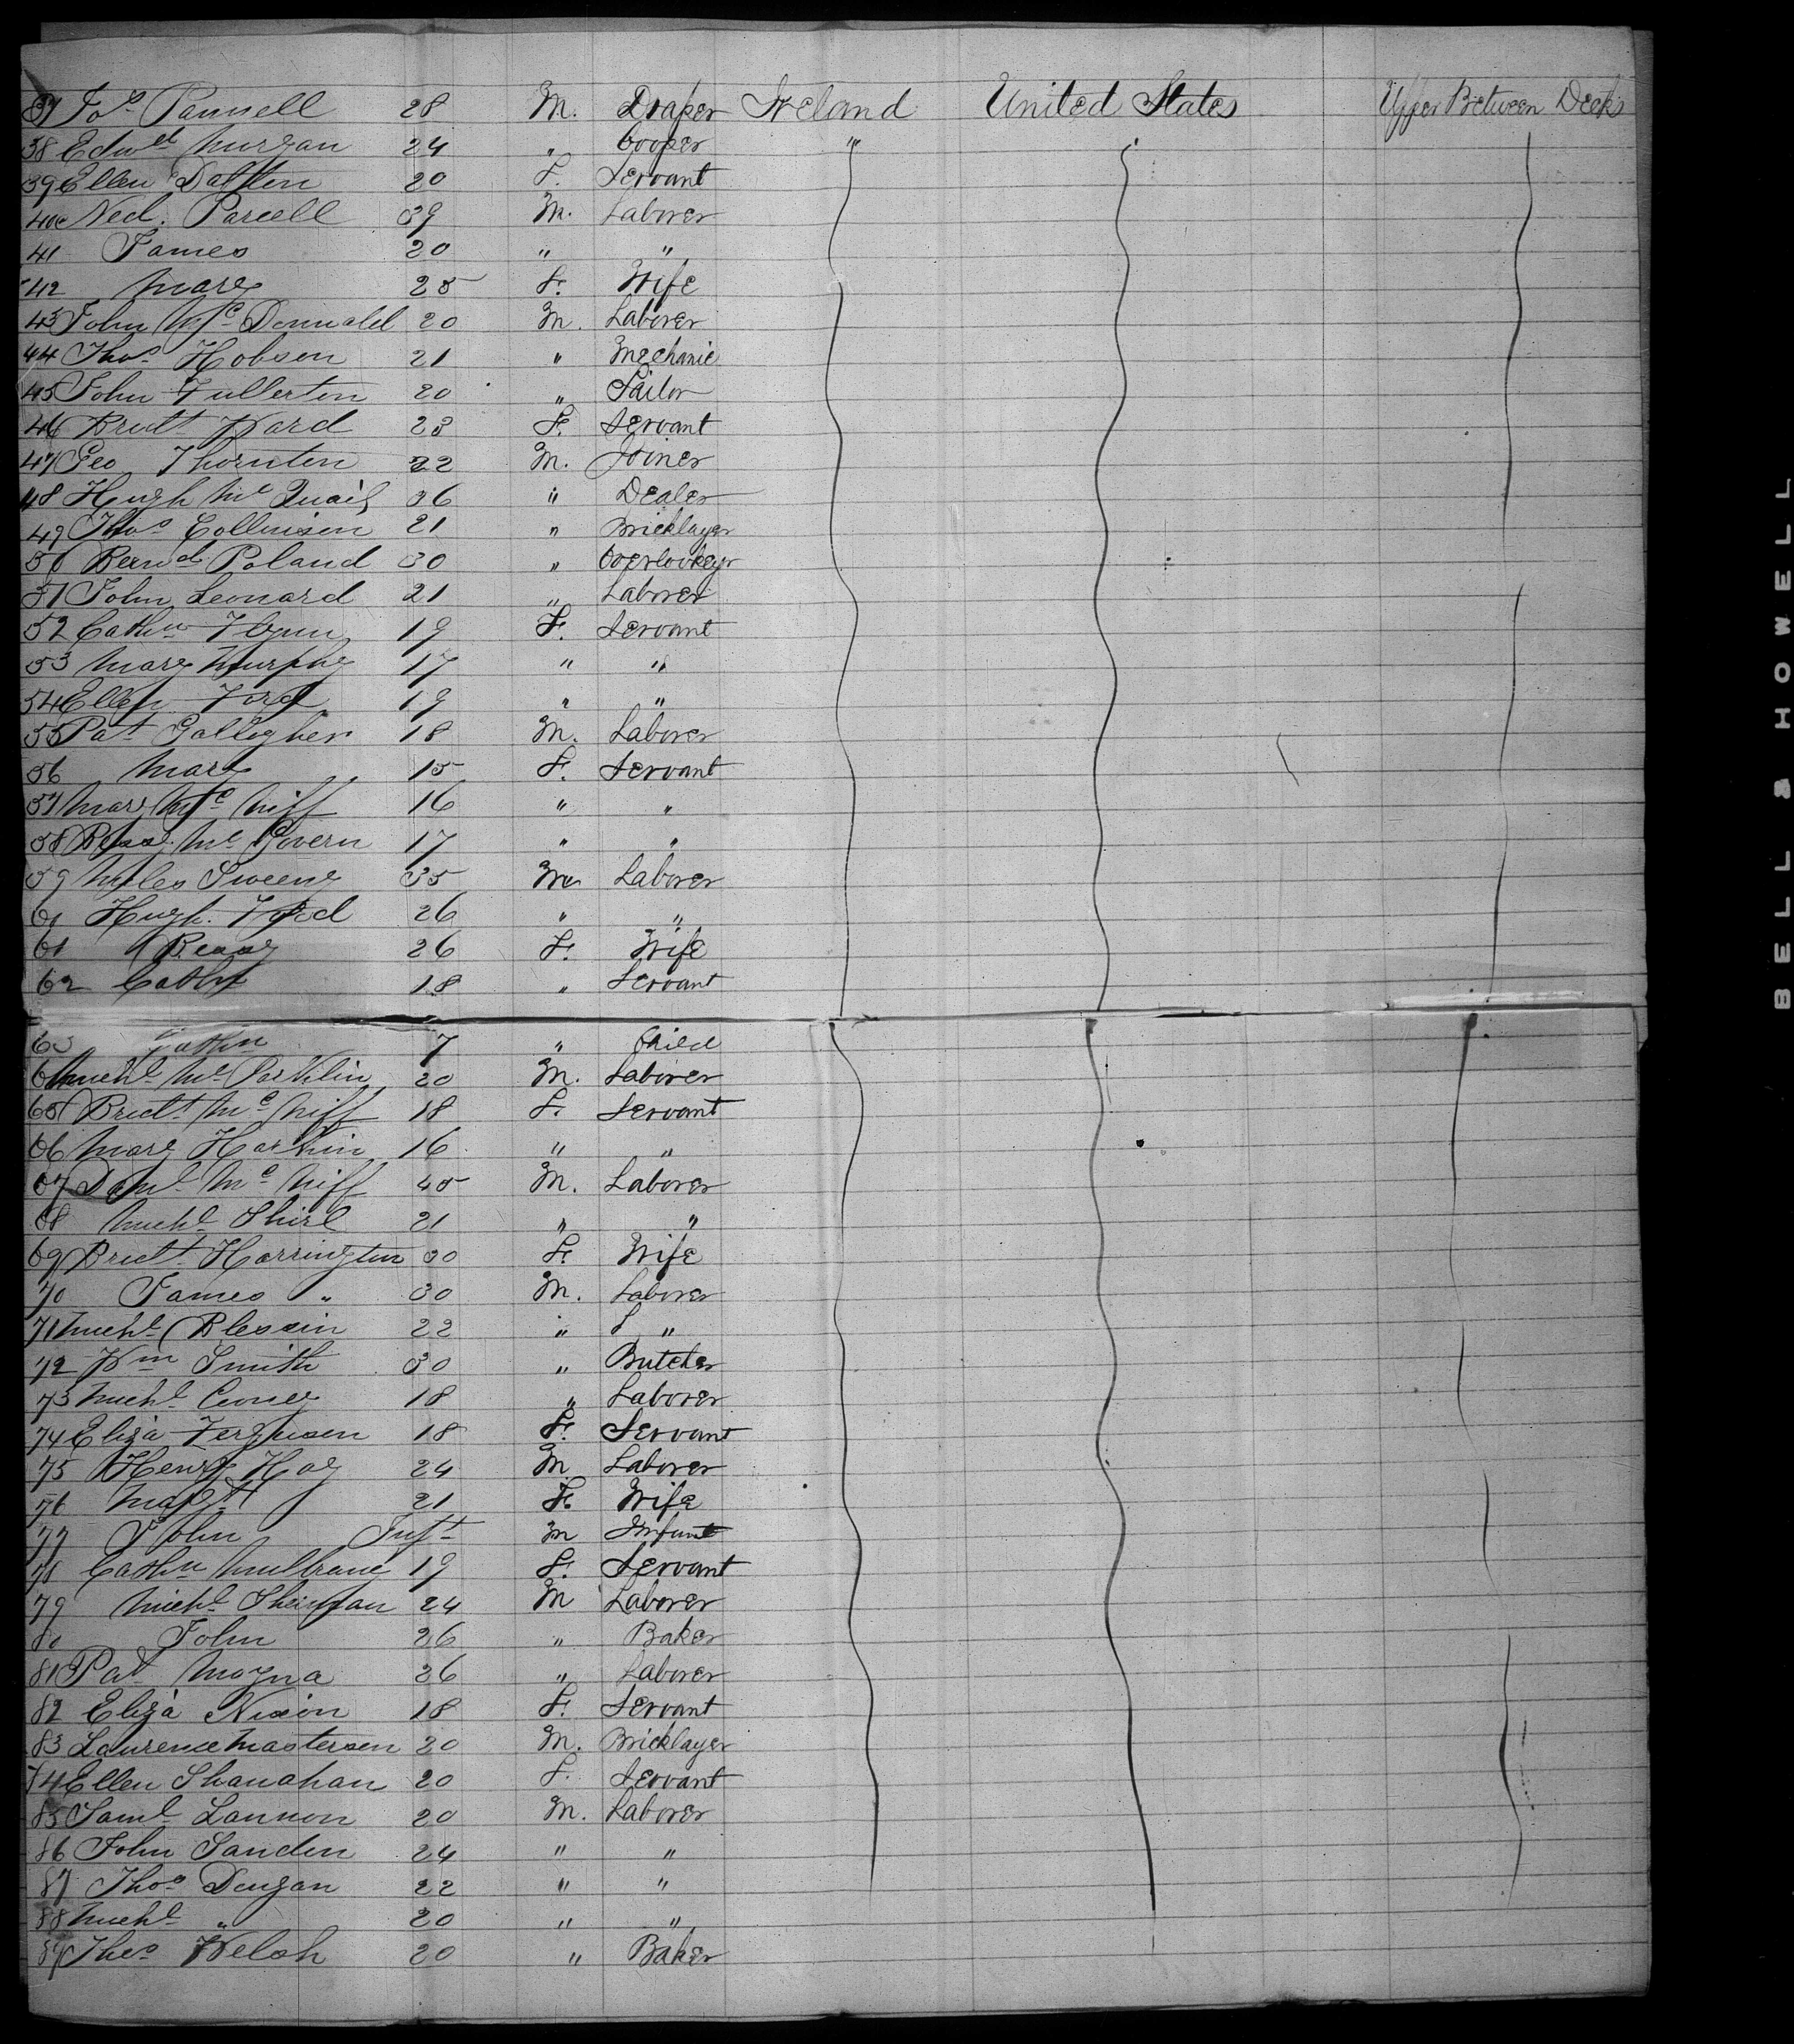 37 Jos Pannell 28 M. Draper Ireland United States Upper Between Decks
38 Edwd Murgan 24 " Cooper "
39 Ellen Dalton 20 F. Servant
40 Ned. Parcell 39 M. Laborer
41 James 20 " "
42 Mary 25 F. Wife
43 John McDonnald 20 M. Laborer
44 Thos Hobson 21 " Mechanic
45 John Fullerton 20 "
46 Bridt Ward 23 F. Servant
47 Geo Thornton 22 M. Joiner
48 Hugh Mc Quaid 36 " Dealer
49 Thos Collinson 21 " Bricklayer
50 Bernd Poland 30 " Overlooker
51 John Leonard 21 " Laborer
52 Cathn Flynn 19 F. Servant
53 Mary Murphy 17 " "
54 Ellen Ford 19 " "
55 Pat Gallegher 18 M. Laborer
56 Mary 15 F. Servant
57 Mary Mc Niff 16 " "
58 Bessy Mc Govern 17 " "
59 Myles Sweeny 35 M Laborer
60 Hugh. 26 " "
61 Bessy 26 F. Wife
62 18 " Servant
63 Cathn 7 " Child
64 Michl Mc 20 M. Laborer
65 Bridt Mc Niff 18 F. Servant
66 Mary Harkin 16 " "
67 Danl Mc Niff 45 M. Laborer
68 Michl 21 " "
69 Bridt Harrington 30 F. Wife
70 James " 30 M. Laborer
71 Michl Blessin 22 " L "
72 Wm Smith 30 " Butcher
73 Michl 18 " Laborer
74 Eliza Ferguson 18 F. Servant
75 Henry Hoy 24 M Laborer
76 Magt 21 F. Wife
77 John Inft M Infant
78 Cathn Mulbrany 19 F. Servant
79 Michl 24 M Laborer
80 John 26 " Baker
81 Pat Moyna 26 " Laborer
82 Eliza Nixon 18 F. Servant
83 Laurence Masterson 20 M. Bricklayer
74 Ellen Shanahan 20 F. Servant
85 Saml Lannon 20 M. Laborer
86 John Sanden 24 " "
87 Thos Dungan 22 " "
88 Michl " 20 " "
89 Thos Welsh 20 " Baker
BELL & HOWELL